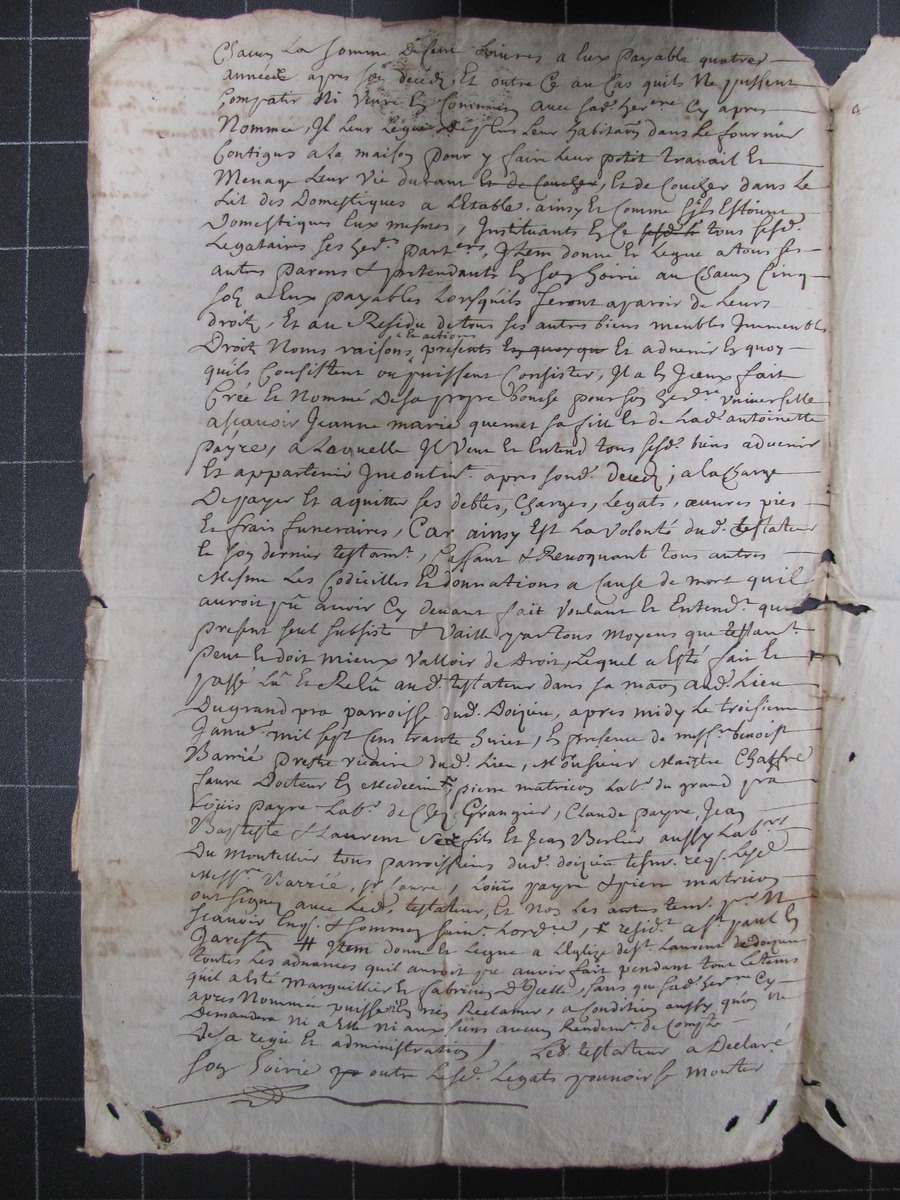 Chacun La somme de Cent Livres a Eux payable quatre
année apres son decedz, Et outre Ce au Cas quils Ne pussent
Compatir Ni Vivre En Commun avec sad. herere Cy apres
Nommée, Il Leur Legue deplus Leur habitaōn dans Le fournier
Contigus a La maison pour y faire Leur petit travail Et
Menage Leur Vie durant Et de Coucher, Et de Coucher dans Le
Lit des Domestiques a L'Etable ainsy Et Comme s'ils Estoient
Domestiques Eux mesmes, Instituants En Ce tous sesd.
Legataires ses her.rs part.ers, Item donne Et Legue a tous ses
autres parens & pretendants En son hoirie au Chacun Cinq
solz a Eux payables Lorsqu'ils feront aparoir de Leurs
droitz, Et au Residu de tous ses autres biens meubles Immeubles
Droitz Noms raisons, Et actions presents En quoy que Et advenir En quoy
quils Consistent ou puissent Consister, Il a En Iceux fait
Créé Et Nommé De sa propre bouche pour son her.re Vniverselle
ascavoir Jeanne marie quemet sa fille Et de Lad. antoinette
payre, a Laquelle Il Veut Et Entend tous sesd. biens advenir
Et appartenir Incontin.t apres sond. decedz; a la Charge
De payer Et aquitter ses debtes, Charges, Legats, œuvres pies
Et frais funeraires, Car ainsy Est La Volonté dud. testateur
Et son dernier testam.t, Cassant & Revoquant tous autres
Mesme Les Codicilles Et donnations a Cause de mort quil
auroit pû avoir Cy devant fait Voulant Et Entend.t que
present seul subsiste & Vaille par tous Moyens que testam.t
peut Et doit mieux Valloir de Droit, Lequel a Esté fait Et
passé Lû Et Relû aud. testateur dans sa maōn aud. Lieu
Du grand pra parroisse dud. Doizieu, apres midy Le troisieme
Janv.r mil sept Cens trante huict, En presence de mess.re benoist
Barrié prestre vicaire dud. Lieu, Monsieur Maistre Chaffre
faure Docteur En Medecine, pierre matricon Lab.r du grand pra
Loüis payre Lab.r de Chez Grangier, Claude payre, Jean
Baptiste & Laurent fils Et Jean Berlier aussy Lab.rs
Du Montellier tous parroissiens dud. doizieu tesm. req. Lesd.
Mess.re Barrié, s.r faure, Loüis payre & pierre matricon
ont signez avec Led. testateur, Et Non Les autres tem. pour Ne
scavoir Enq. & sommez suiv. Lord.ce, & resid.t a s.t paul En
Jarestz # Item donne Et Legue a L'Eglize de s.t Laurens de doizieu
toutes Les advances quil auroit pu avoir fait pendant tout Le tems
quil a Esté Marguillier Et fabricien D'Icelle, sans que sad. herere Cy
apres Nommée puisse Rien Reclamer, a Condition aussy qu'on Ne
Demandera Ni a Elle Ni aux siens aucun Rendem.t de Compte
De sa regie Et administration / Led. testateur a Declaré
son hoirie outre Lesd. Legats pouvoir se monter